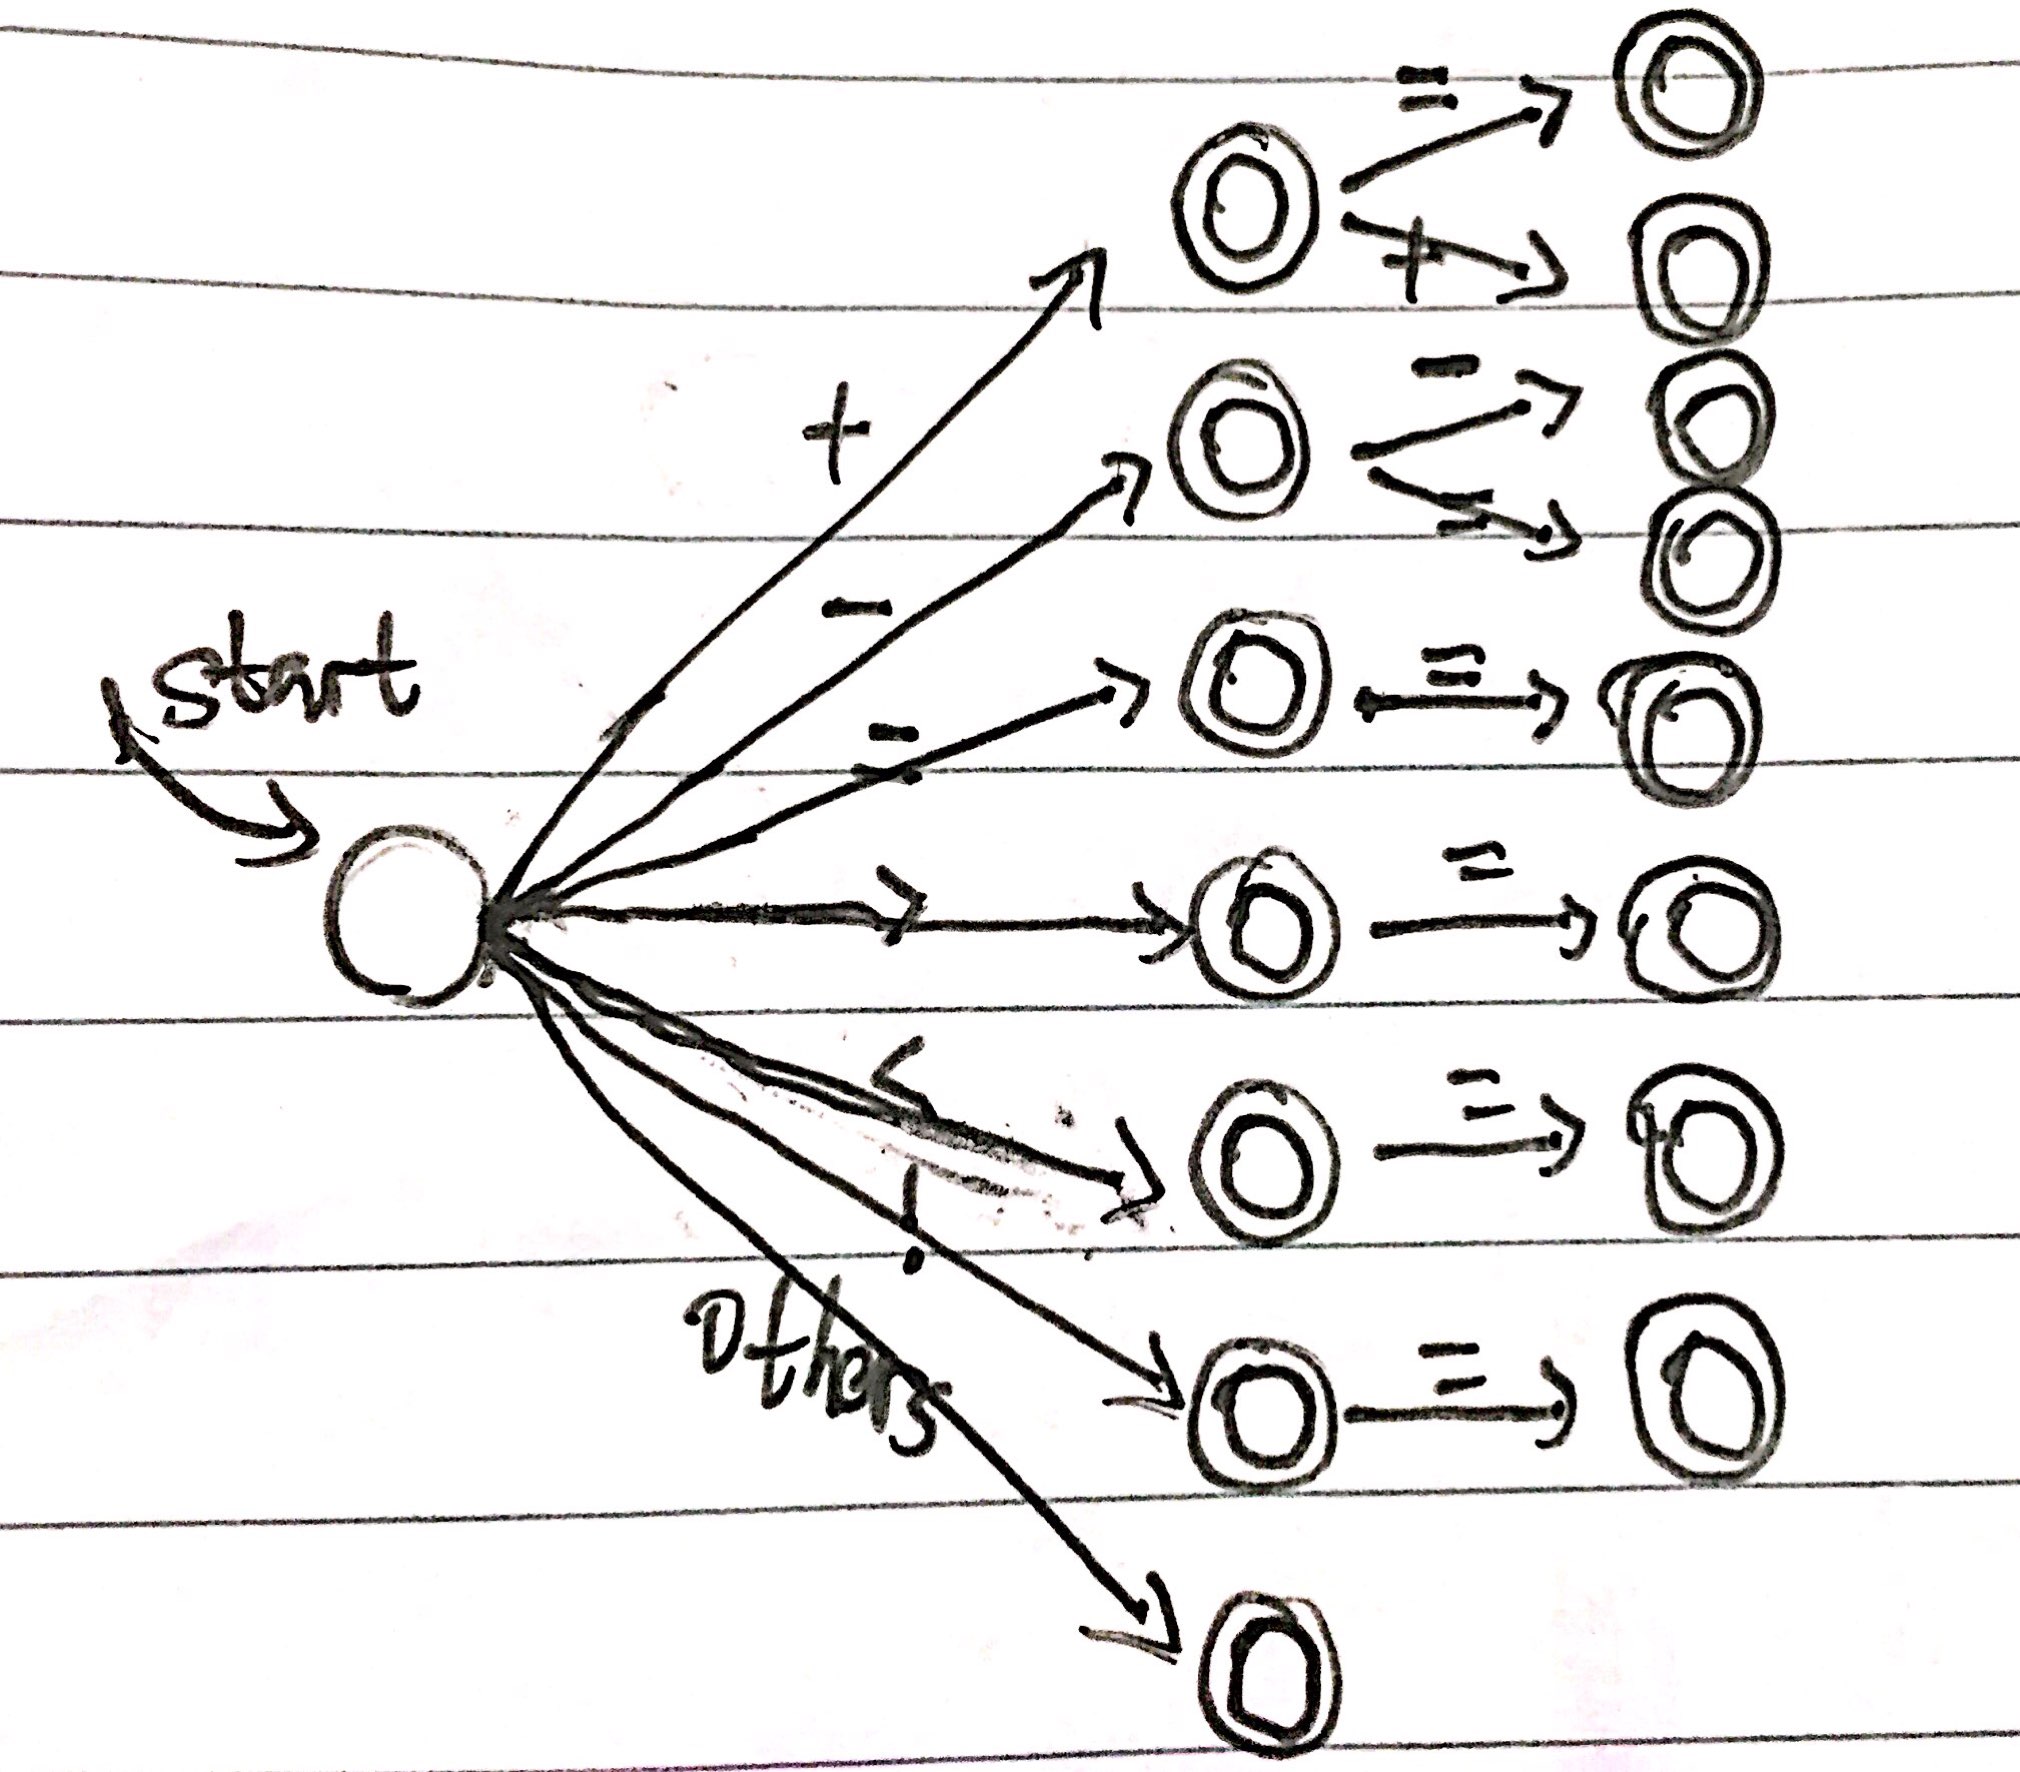 =
+
+
-
-
=
start
=
=
>
=
<
=
!
others
=